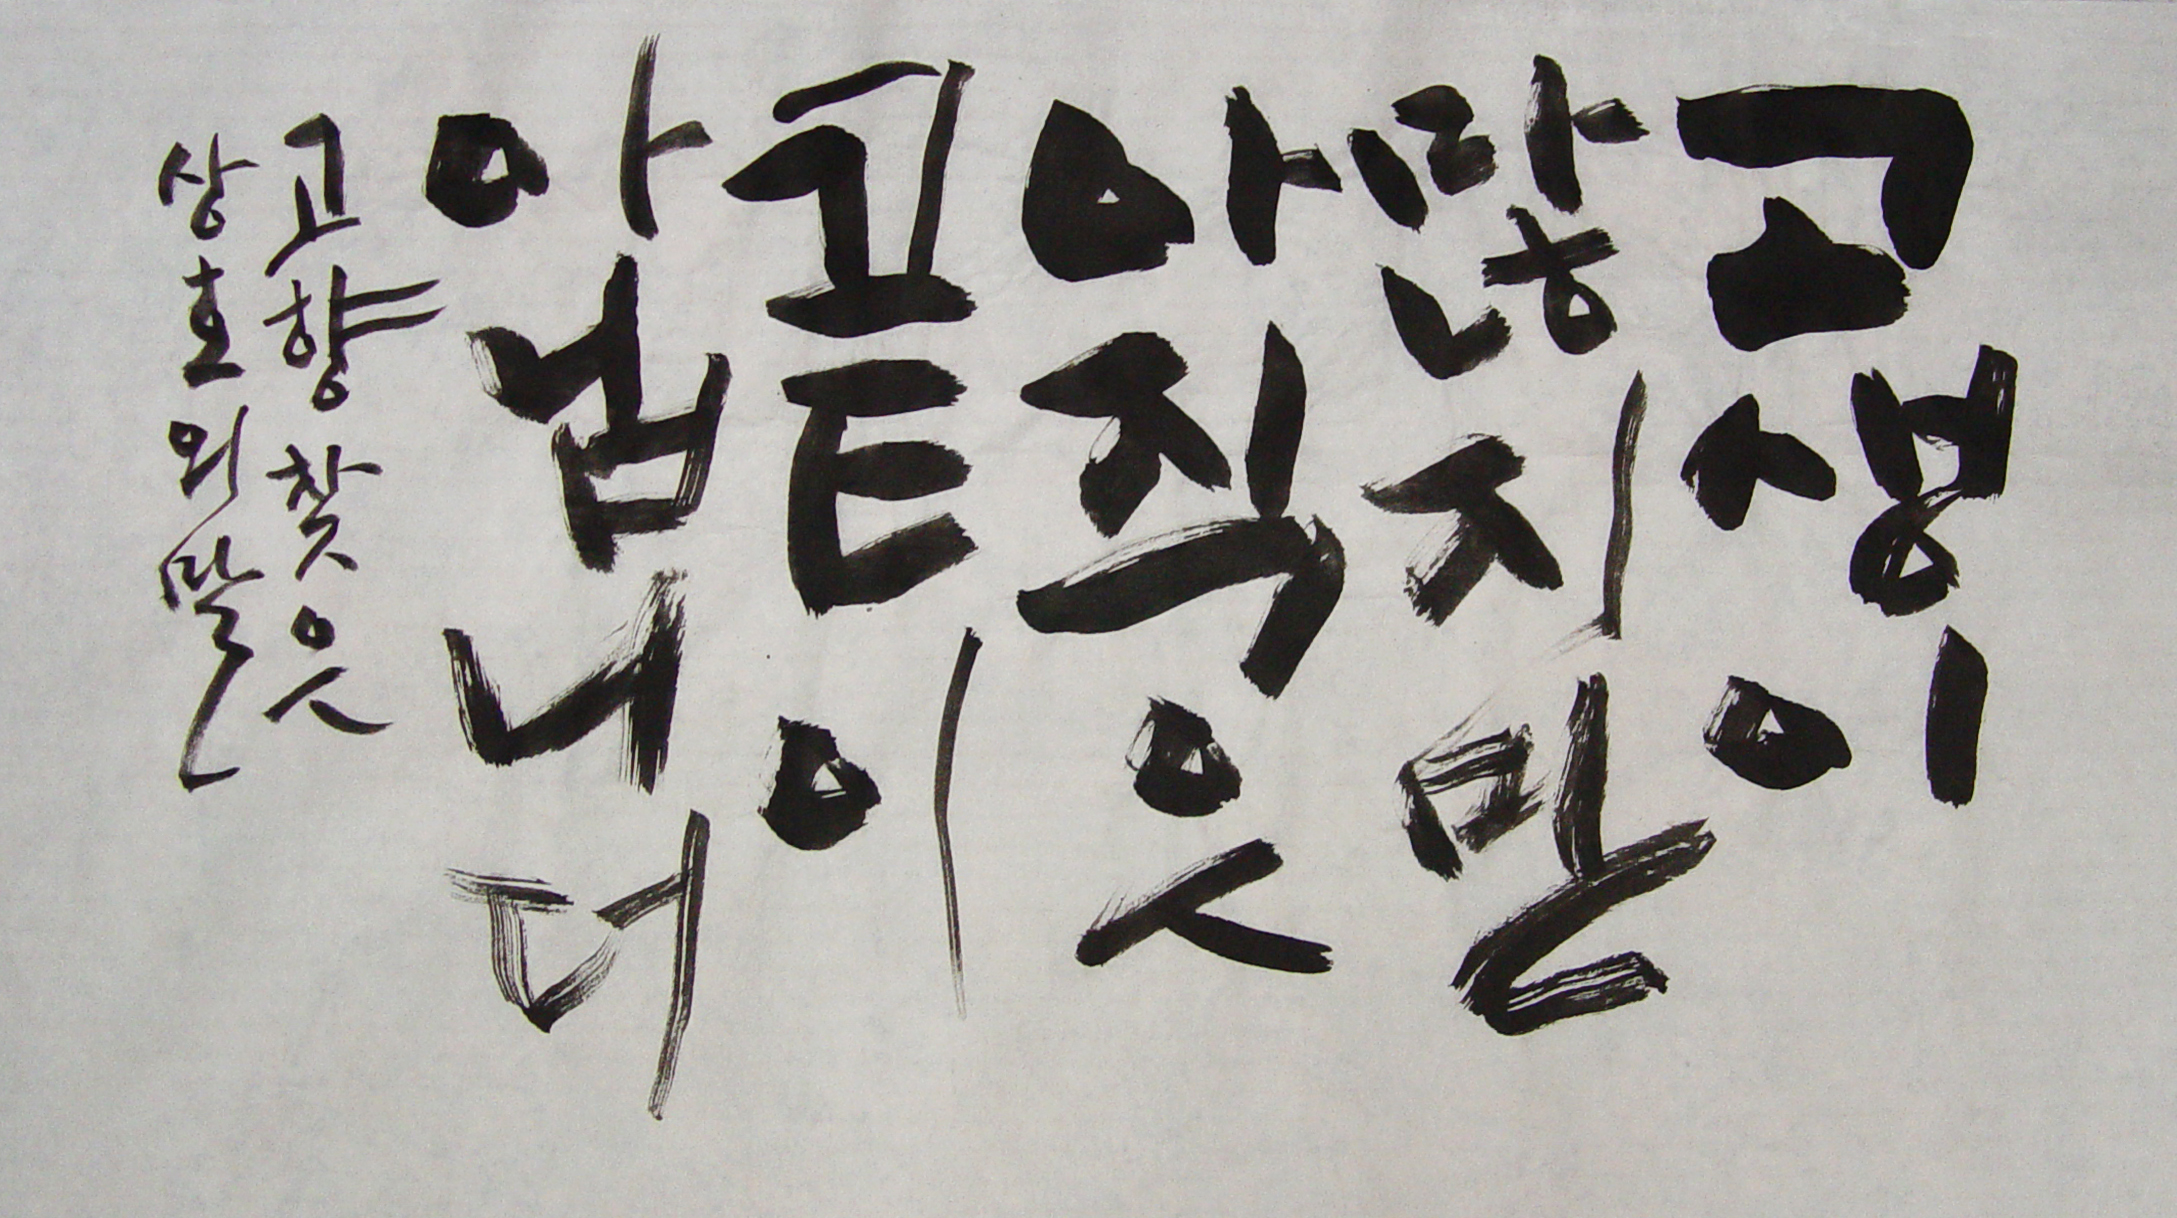 고생이
많지만
아직은
끝이
아닙니더
고향 찾은
상호의 말